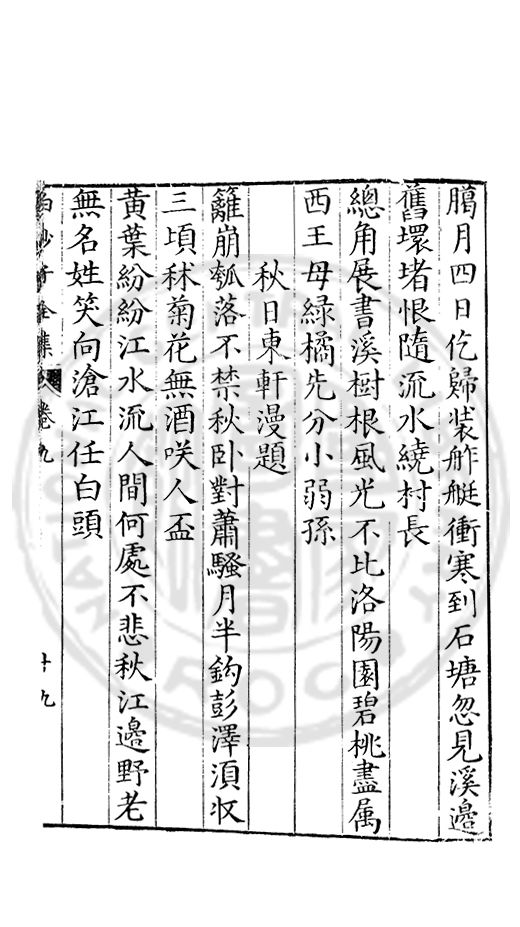 臈月四日仡歸裝舴艇衝寒到石塘忽見溪邉
舊環堵恨隨流水繞村長
總角展書溪樹根風光不比洛陽園碧桃盡属
西王母綠橘先分小弱孫
秋日東軒漫題
籬崩瓠落不禁秋卧對蕭騷月半鈎彭澤湏收
三頃秫菊花無酒咲人盃
黃葉紛紛江水流人間何處不悲秋江邉野老
無名姓笑向滄江任白頭
白沙子全集
卷九
十九